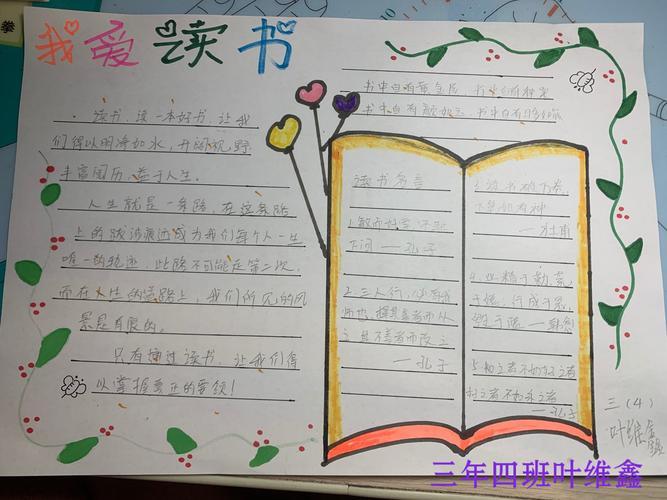 我爱读书
读书,读一本好书,让我
们得以明净如水,开阔视野
丰富阅历,益于人生。
人生就是一条路,在这条路
上的跋涉痕迹成为我们每个人一生
唯一的轨迹,此路不可能走第二次,
而在人生的道路上,我们所见的风
景是有限的。
只有通过读书,让我们得
以掌握真正的要领!
书中自有黄金屋,书中自有
书中自有颜如玉,书中自有
读书名言
1.敏而好学,不耻
下问——孔子
2.三人行,必有我
师也,择其善者而从
之,其不善者而改之
——孔子
3.读书破万卷,
下笔如有神
——杜甫
4.业精于勤,荒
于嬉,行成于思,
毁于随——韩愈
5.知之者不如好之者
好之者不如乐之者
——孔子
三(4)
叶维鑫
三年四班叶维鑫